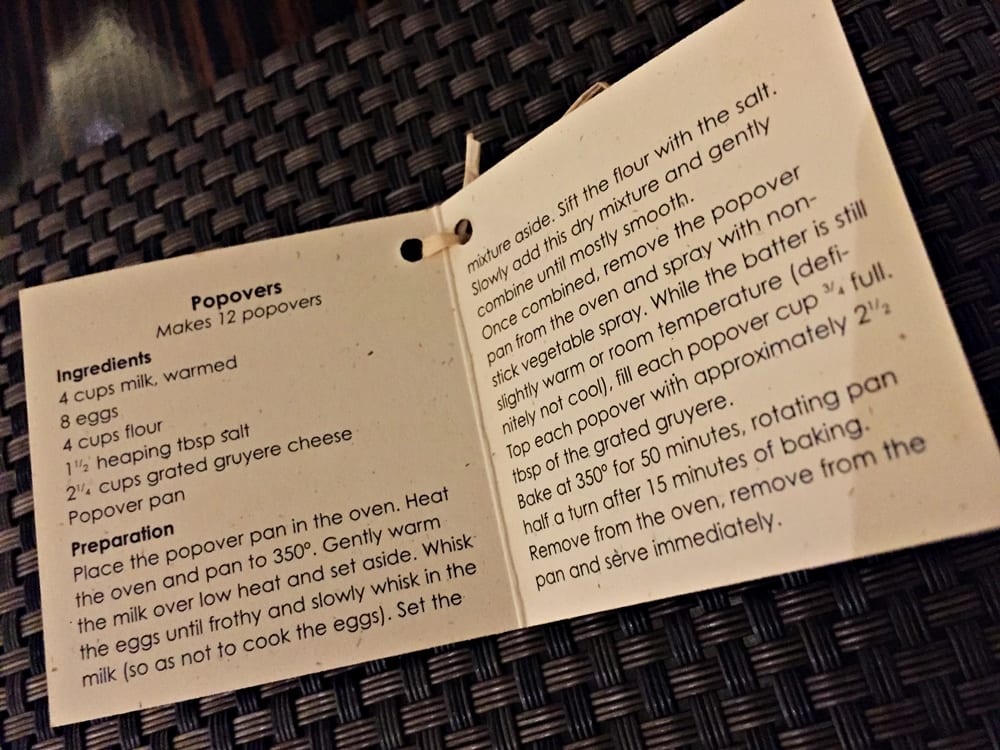 Popovers
Makes 12 popovers
Ingredients
4 cups milk, warmed
8 eggs
4 cups flour
1 1/2 heaping tbsp salt
2 1/4 cups grated gruyere cheese
Popover pan
Preparation
Place the popover pan in the oven. Heat
the oven and pan to 350°. Gently warm
the milk over low heat and set aside. Whisk
the eggs until frothy and slowly whisk in the
milk (so as not to cook the eggs). Set the
mixture aside. Sift the flour with the salt.
Slowly add this dry mixture and gently
combine until mostly smooth.
Once combined, remove the popover
pan from the oven and spray with non-
stick vegetable spray. While the batter is still
slightly warm or room temperature (defi-
nitely not cool), fill each popover cup 3/4 full.
Top each popover with approximately 2 1/2
tbsp of the grated gruyere.
Bake at 350° for 50 minutes, rotating pan
half a turn after 15 minutes of baking.
Remove from the oven, remove from the
pan and serve immediately.